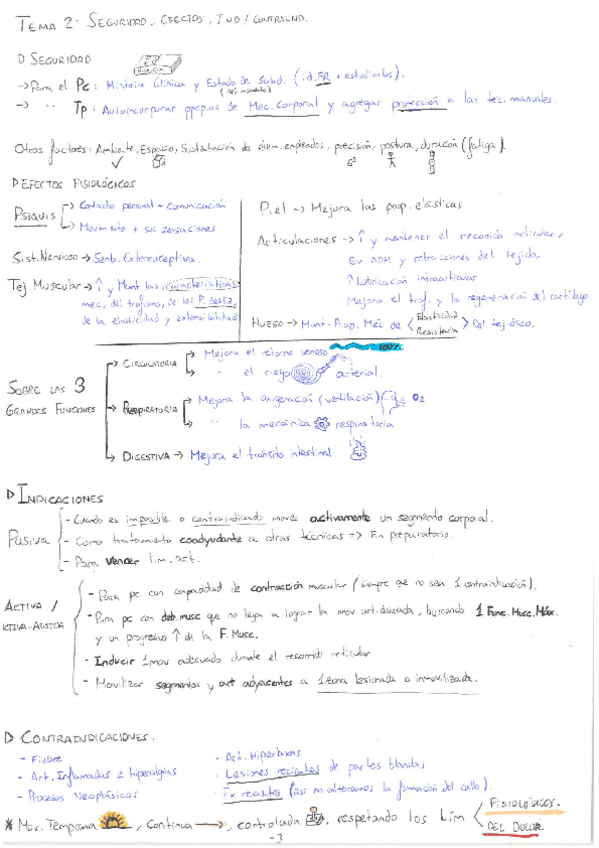 TEMA 2: SEGURIDAD, EFECTOS, IND / CONTRAIND.
▷ SEGURIDAD
→ Para el Pc: Historia Clínica y Estado de Salud. (id. FR + estudiarlos).
→ " " Tp: Autoincorporar ppepios de Mec. Corporal y agregar protección a las tec. manuales.
Otros factores: Ambiente, Espacio, Sujetación de elem. empleados, precisión, postura, duración (fatiga).
▷ EFECTOS FISIOLÓGICOS
PSIQUIS → Contacto personal + Comunicación
→ Movimiento + sus sensaciones
Sist. Nervioso → Senb. Extereoceptiva.
Tej. Muscular → ↑ y Mant las características
mec, del trofismo, de los P. desliz,
de la elasticidad y extensibilidad
Piel → Mejora las prop. elásticas
Articulaciones → ↑ y mantener el recorrido articular,
Ev. ADH y retracciones del tejido,
↑ Lubricación intraarticular
Mejora el trof. y la regeneración del cartílago.
HUESO → Mant. Prop. Mec de < Elasticidad Resistencia > Del tej. óseo.
SOBRE LAS 3
GRANDES FUNCIONES
CIRCULATORIA → Mejora el retorno venoso 100%
→ " el riego arterial.
RESPIRATORIA → Mejora la oxigenación (ventilación) O2
→ " la mecánica respiratoria
DIGESTIVA → Mejora el tránsito intestinal
▷ INDICACIONES
Pasiva
- Cuando es imposible o contraindicado mover activamente un segmento corporal.
- Como tratamiento coadyudante a otras técnicas => Fin preparatorio.
- Para vencer lim. art.
ACTIVA /
ACTIVA-ASISTIDA
- Para pc con capacidad de contracción muscular (siempre que no sea 1 contraindicación).
- Para pc con deb. musc que no llega a lograr la mov art. deseada, buscando 1 Func. Musc. Máx.
y un progresivo ↑ de la F. Musc.
- Inducir 1 mov adecuado durante el recorrido articular
- Movilizar segmentos y art adyacentes a 1 zona lesionada o inmovilizada.
▷ CONTRAINDICACIONES.
- Fiebre
- Art. Inflamadas e hiperalgias
- Procesos Neoplásicos
- Art. Hiperlaxas
- Lesiones recientes de partes blandas
- Fx recientes (Así no alteramos la formación del callo).
* Mov. Temprana, Continua →, controlada, respetando los Lim < FISIOLÓGICOS. DEL DOLOR.
- 3